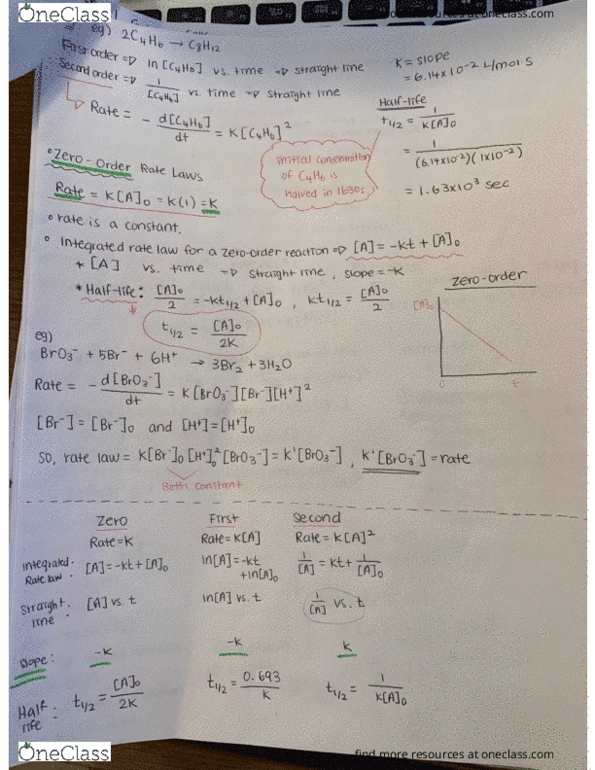 OneClass
find more resources at oneclass.com
eg) 2C₄H₆ → C₈H₁₂
First order => ln[C₄H₆] vs. time => straight line
Second order => 1/[C₄H₆] vs. time => straight line
Rate = - d[C₄H₆]/dt = K[C₄H₆]²
K = slope
= 6.14x10⁻² L/mol s
Half-life
t₁/₂ = 1/K[A]₀
= 1/(6.14x10⁻²)(1x10⁻²)
= 1.63x10³ sec
initial concentration
of C₄H₆ is
halved in 1630s
• Zero-Order Rate Laws
Rate = K[A]₀ = K(1) = K
• rate is a constant.
• Integrated rate law for a zero-order reaction => [A] = -kt + [A]₀
* [A] vs. time => straight line, slope = -k
* Half-life: [A]₀/2 = -kt₁/₂ + [A]₀ , kt₁/₂ = [A]₀/2
t₁/₂ = [A]₀/2K
zero-order
[A]₀
0 t
eg)
BrO₃⁻ + 5Br⁻ + 6H⁺ → 3Br₂ + 3H₂O
Rate = - d[BrO₃⁻]/dt = K[BrO₃⁻][Br⁻][H⁺]²
[Br⁻] = [Br⁻]₀ and [H⁺] = [H⁺]₀
so, rate law = K[Br⁻]₀[H⁺]₀²[BrO₃⁻] = K'[BrO₃⁻] , K'[BrO₃⁻] = rate
Both constant
Zero First Second
Rate = K Rate = K[A] Rate = K[A]²
Integrated Rate law : [A] = -kt + [A]₀ ln[A] = -kt + ln[A]₀ 1/[A] = kt + 1/[A]₀
Straight line : [A] vs. t ln[A] vs. t 1/[A] vs. t
slope: -k -k k
Half life : t₁/₂ = [A]₀/2K t₁/₂ = 0.693/K t₁/₂ = 1/K[A]₀
OneClass
find more resources at oneclass.com